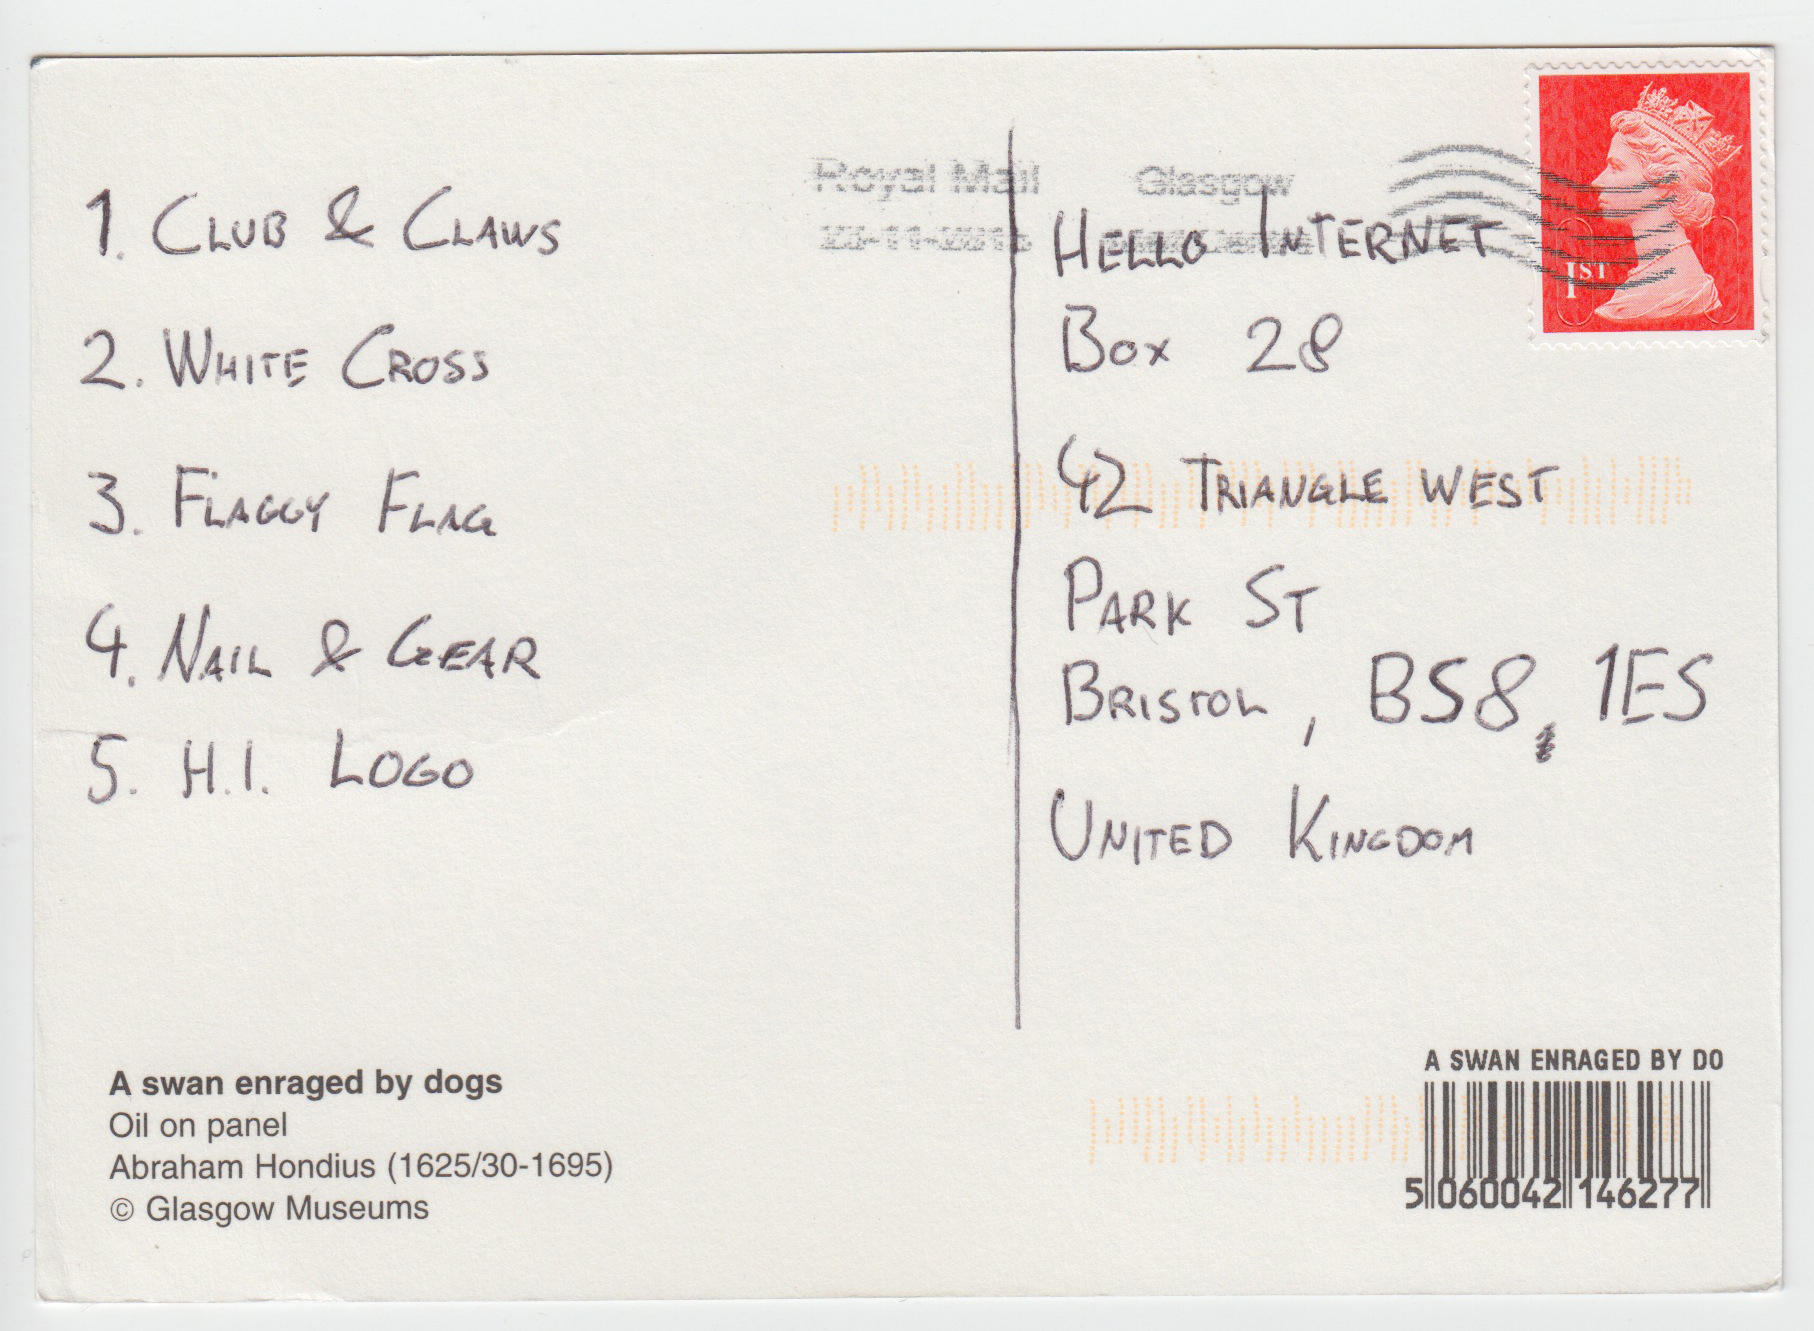 Royal Mail Glasgow
1. CLUB & CLAWS
2. WHITE CROSS
3. FLAGGY FLAG
4. NAIL & GEAR
5. H.I. LOGO
HELLO INTERNET
BOX 28
42 TRIANGLE WEST
PARK ST
BRISTOL, BS8 1ES
UNITED KINGDOM
1ST
A swan enraged by dogs
Oil on panel
Abraham Hondius (1625/30-1695)
© Glasgow Museums
A SWAN ENRAGED BY DO
5 060042 146277